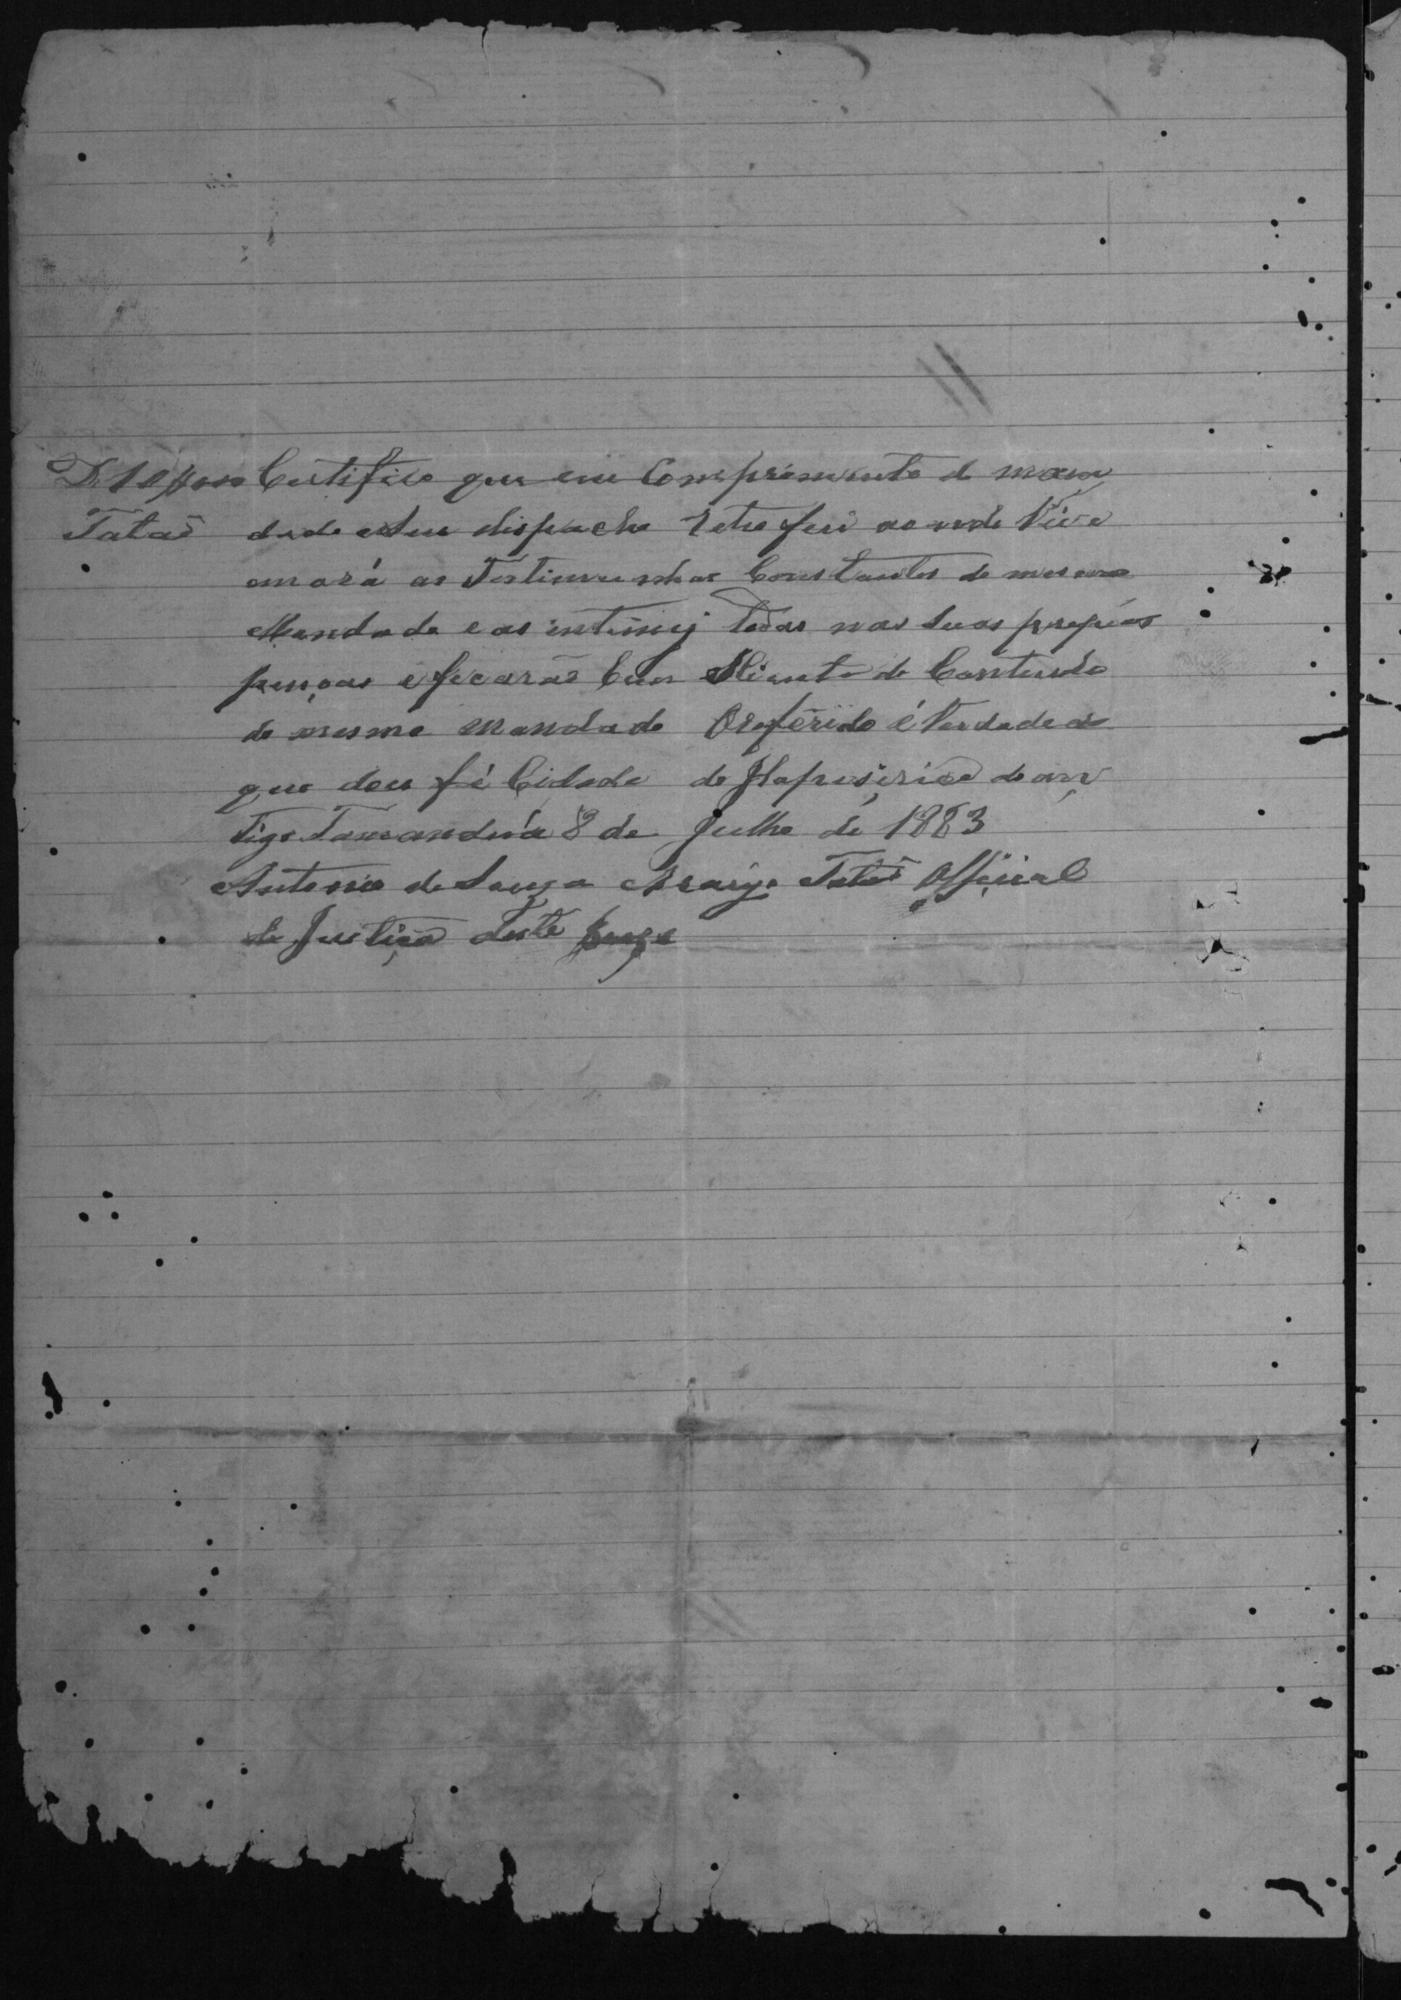 D. 10$000 Certifico que em Comprimento do man
Tatão dado e Seu dispacho Retro fui aonde Vive
emorá as Testimunhas Constantes do mesmo
Mandado e as intimej todas nas Suas propias
peçoas e ficarão bem Sliente do Contiudo
do mesmo mandado Oreferido é Verdade do
que dou fé Cidade de Itapeserica do an
tigo Tamanduá 8 de Julho de 1883
Antonio de Souza Araujo Tatão Official
de Justiça deste